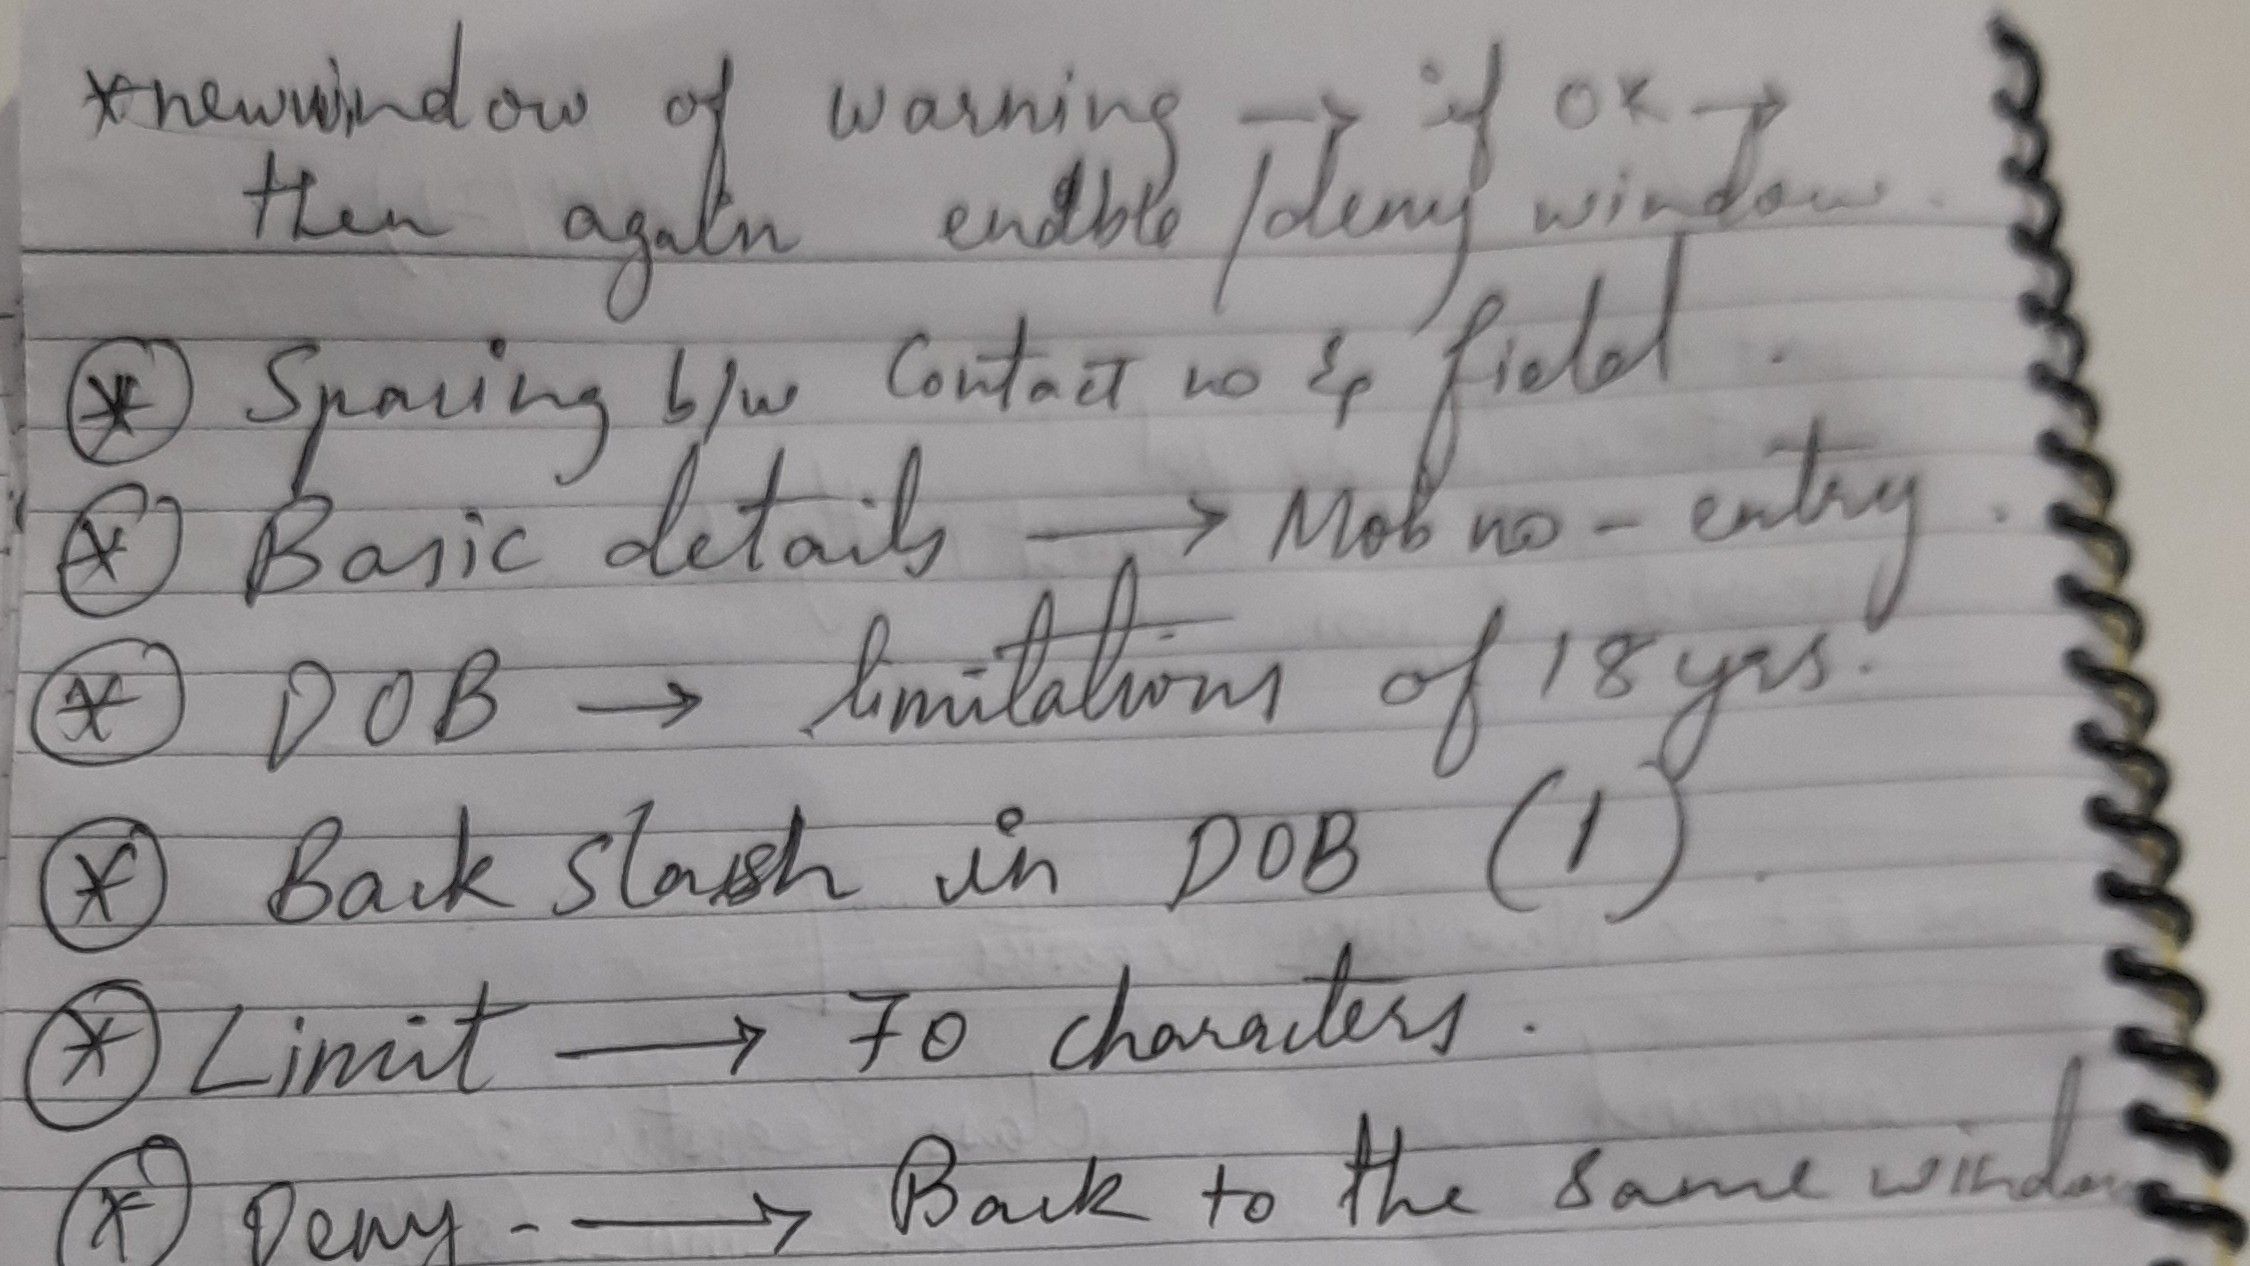 * new window of warning → if OK →
then again enable / deny window.
* Spacing b/w Contact no & field.
* Basic details → Mob no - entry.
* DOB → limitations of 18 yrs.
* Back slash in DOB (/)
* Limit → 70 characters.
* Deny - → Back to the same window